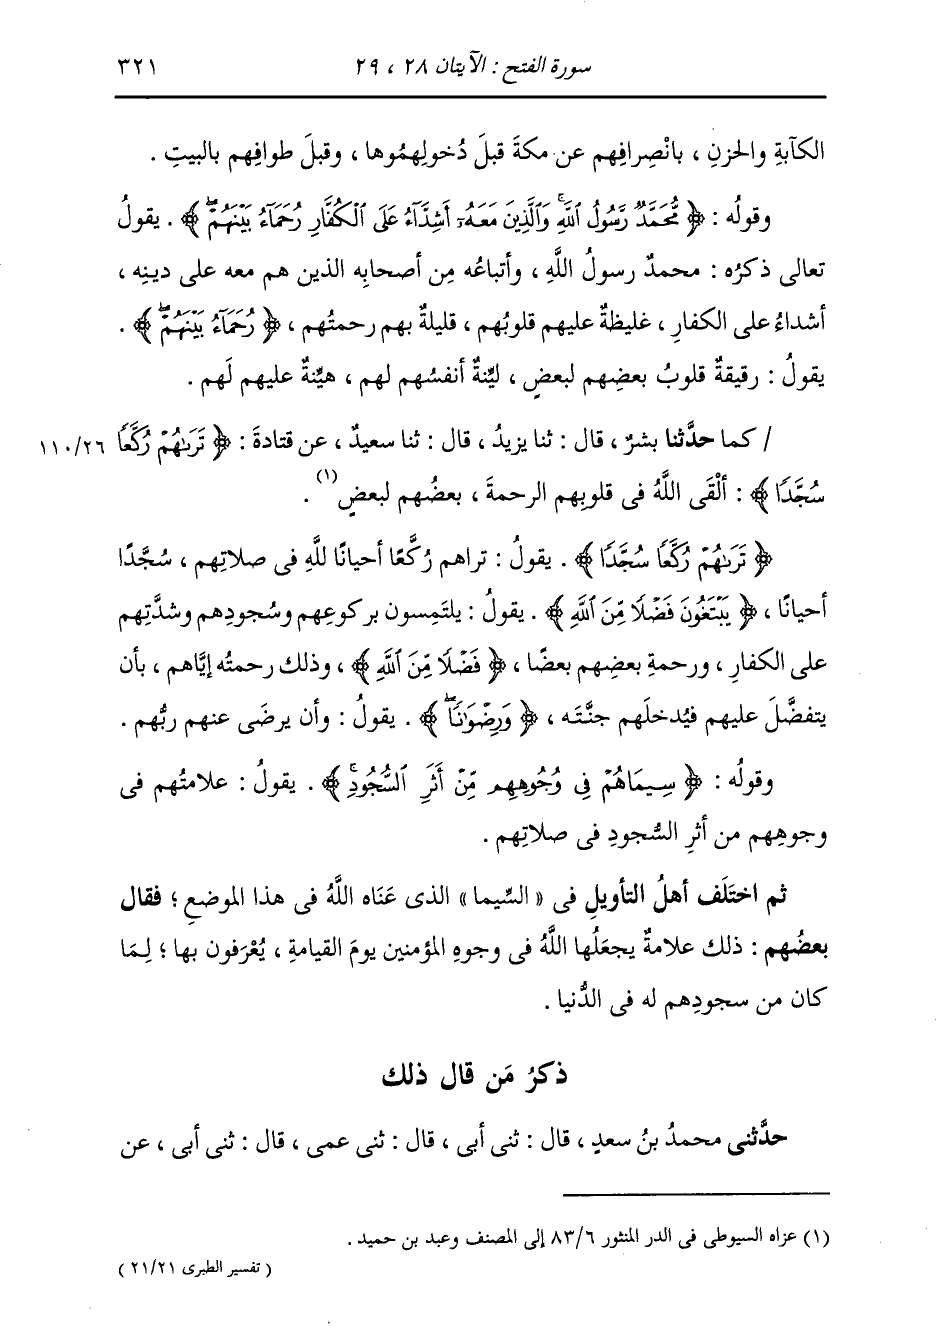 سورة الفتح : الآيتان ٢٨ ، ٢٩ ٣٢١
الكآبةِ والحزنِ ، بانْصِرافِهم عن مكةَ قبلَ دُخولِهمُوها ، وقبلَ طوافِهم بالبيتِ .
وقولُه : ﴿ مُّحَمَّدٌ رَّسُولُ ٱللَّهِۚ وَٱلَّذِينَ مَعَهُۥٓ أَشِدَّآءُ عَلَى ٱلْكُفَّارِ رُحَمَآءُ بَيْنَهُمْۖ ﴾ . يقولُ
تعالى ذكرُه : محمدٌ رسولُ اللَّهِ ، وأتباعُه مِن أصحابِه الذين هم معه على دينِه ،
أشداءُ على الكفارِ ، غليظةٌ عليهم قلوبُهم ، قليلةٌ بهم رحمتُهم ، ﴿ رُحَمَآءُ بَيْنَهُمْۖ ﴾ .
يقولُ : رقيقةٌ قلوبُ بعضِهم لبعضٍ ، ليِّنةٌ أنفسُهم لهم ، هيِّنةٌ عليهم لَهم .
/ كما حدَّثنا بشرٌ ، قال : ثنا يزيدُ ، قال : ثنا سعيدٌ ، عن قتادةَ : ﴿ تَرَىٰهُمْ رُكَّعًا ١١٠/٢٦
سُجَّدًا ﴾ : ألْقَى اللَّهُ فى قلوبِهم الرحمةَ ، بعضُهم لبعضٍ (١) .
﴿ تَرَىٰهُمْ رُكَّعًا سُجَّدًا ﴾ . يقولُ : تراهم رُكَّعًا أحيانًا للَّهِ فى صلاتِهم ، سُجَّدًا
أحيانًا ، ﴿ يَبْتَغُونَ فَضْلًا مِّنَ ٱللَّهِ ﴾ . يقولُ : يلتَمِسون بركوعِهم وسُجودِهم وشدَّتِهم
على الكفارِ ، ورحمةِ بعضِهم بعضًا ، ﴿ فَضْلًا مِّنَ ٱللَّهِ ﴾ ، وذلك رحمتُه إيَّاهم ، بأن
يتفضَّلَ عليهم فيُدخلَهم جنَّتَه ، ﴿ وَرِضْوَٰنًاۖ ﴾ . يقولُ : وأن يرضَى عنهم ربُّهم .
وقولُه : ﴿ سِيمَاهُمْ فِى وُجُوهِهِم مِّنْ أَثَرِ ٱلسُّجُودِۚ ﴾ . يقولُ : علامتُهم فى
وجوهِهم من أثرِ السُّجودِ فى صلاتِهم .
ثم اختَلَف أهلُ التأويلِ فى « السِّيما » الذى عَنَاه اللَّهُ فى هذا الموضعِ ؛ فقال
بعضُهم : ذلك علامةٌ يجعَلُها اللَّهُ فى وجوهِ المؤمنين يومَ القيامةِ ، يُعْرَفون بها ؛ لِمَا
كان من سجودِهم له فى الدُّنيا .
ذكرُ مَن قال ذلك
حدَّثنى محمدُ بنُ سعدٍ ، قال : ثنى أبى ، قال : ثنى عمى ، قال : ثنى أبى ، عن
(١) عزاه السيوطى فى الدر المنثور ٨٣/٦ إلى المصنف وعبد بن حميد .
( تفسير الطبرى ٢١/٢١ )